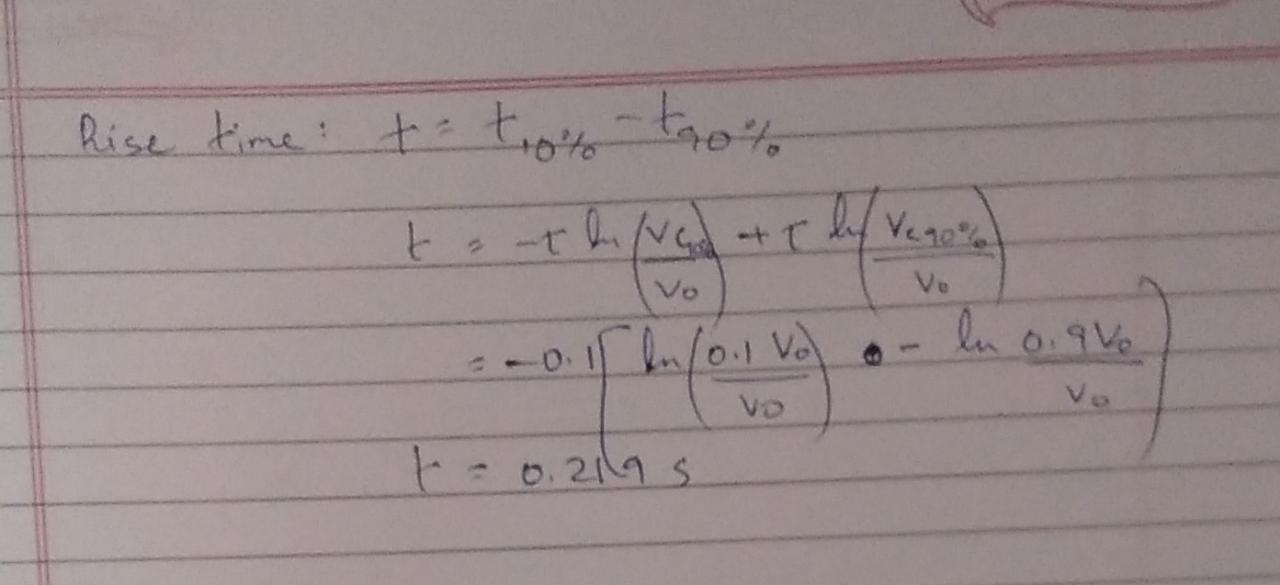 Rise time: t = t10% - t90%
t = -τ ln (Vc10%/V0) + τ ln (Vc90%/V0)
= -0.1 [ ln (0.1 V0/V0) - ln 0.9V0/V0 ]
t = 0.219 s